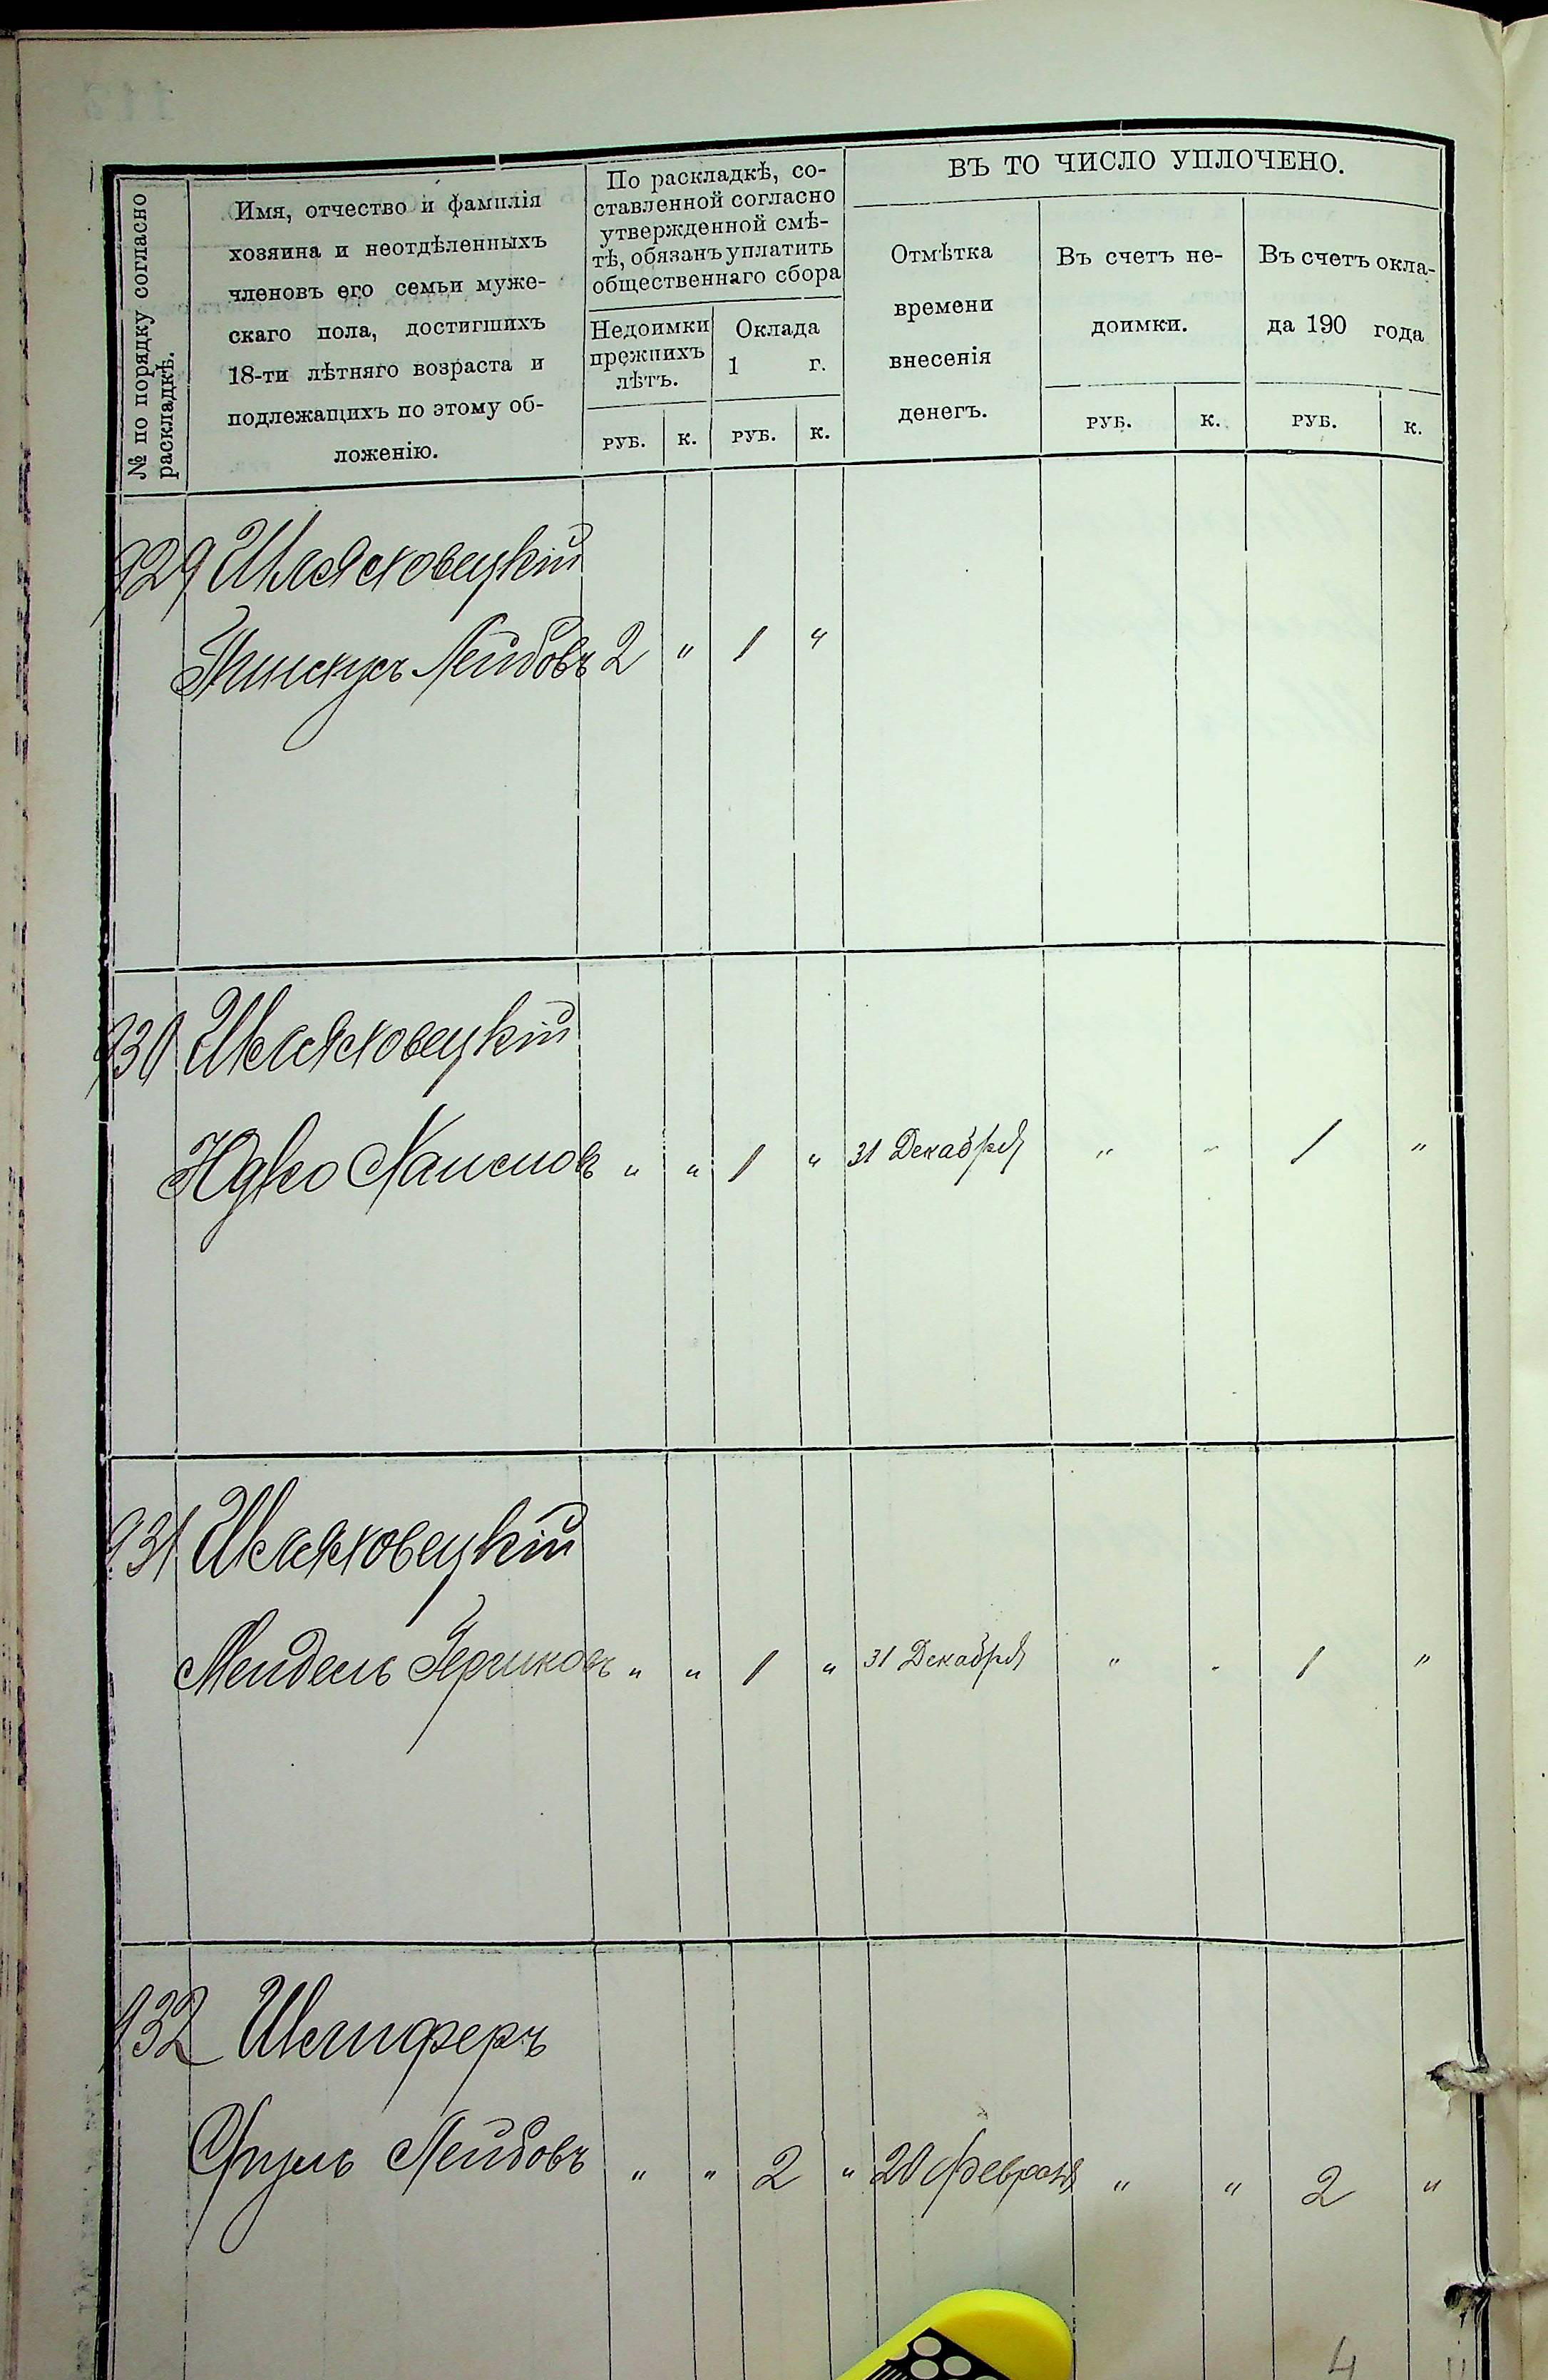 № по порядку согласно
раскладкѣ.
Имя, отчество и фамилія
хозяина и неотдѣленныхъ
членовъ его семьи муже-
скаго пола, достигшихъ
18-ти лѣтняго возраста и
подлежащихъ по этому об-
ложенію.
По раскладкѣ, со-
ставленной согласно
утвержденной смѣ-
тѣ, обязанъ уплатить
общественнаго сбора
Недоимки
прежнихъ
лѣтъ.
Оклада
1 г.
РУБ. К. РУБ. К.
ВЪ ТО ЧИСЛО УПЛОЧЕНО.
Отмѣтка
времени
внесенія
денегъ.
Въ счетъ не-
доимки.
Въ счетъ окла-
да 190 года
РУБ. К. РУБ. К.
929 Шляховецкій
Пинкусъ Лейбовъ 2 " 1 "
930 Шляховецкій
Юдко Хаимовъ " " 1 " 31 Декабря " " 1 "
931 Шляховецкій
Мендель Гершковъ " " 1 " 31 Декабря " " 1 "
932 Шлиферъ
Лейбовъ " " 2 " 20 Февраля " " 2 "
4 "